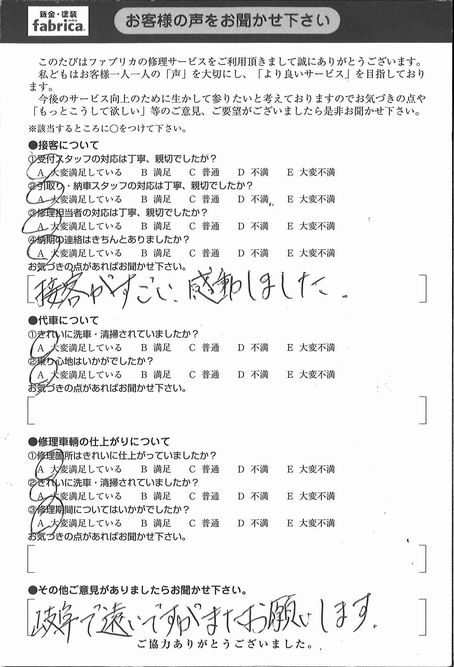 鈑金・塗装
fabrica.
お客様の声をお聞かせ下さい
このたびはファブリカの修理サービスをご利用頂きまして誠にありがとうございます。
私どもはお客様一人一人の「声」を大切にし、「より良いサービス」を目指しており
ます。
今後のサービス向上のために生かして参りたいと考えておりますのでお気づきの点や
「もっとこうして欲しい」等のご意見、ご要望がございましたら是非お聞かせ下さい。
※該当するところに○をつけて下さい。
●接客について
①受付スタッフの対応は丁寧、親切でしたか？
A 大変満足している B 満足 C 普通 D 不満 E 大変不満
②引取り・納車スタッフの対応は丁寧、親切でしたか？
A 大変満足している B 満足 C 普通 D 不満 E 大変不満
③修理担当者の対応は丁寧、親切でしたか？
A 大変満足している B 満足 C 普通 D 不満 E 大変不満
④納期の連絡はきちんとありましたか？
A 大変満足している B 満足 C 普通 D 不満 E 大変不満
お気づきの点があればお聞かせ下さい。
接客がすごい、感動しました。
●代車について
①きれいに洗車・清掃されていましたか？
A 大変満足している B 満足 C 普通 D 不満 E 大変不満
②乗り心地はいかがでしたか？
A 大変満足している B 満足 C 普通 D 不満 E 大変不満
お気づきの点があればお聞かせ下さい。
●修理車輌の仕上がりについて
①修理箇所はきれいに仕上がっていましたか？
A 大変満足している B 満足 C 普通 D 不満 E 大変不満
②きれいに洗車・清掃されていましたか？
A 大変満足している B 満足 C 普通 D 不満 E 大変不満
③修理期間についてはいかがでしたか？
A 大変満足している B 満足 C 普通 D 不満 E 大変不満
お気づきの点があればお聞かせ下さい。
●その他ご意見がありましたらお聞かせ下さい。
岐阜で遠いですがまたお願いします。
ご協力ありがとうございました。